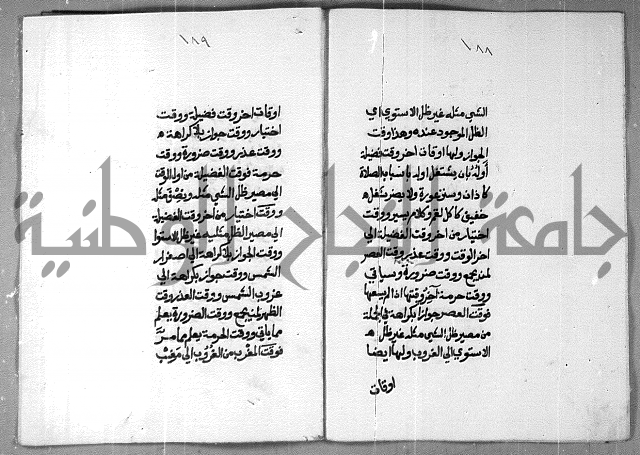 ١٨٨
الشي مثله غير ظل الاستوي اي
الظل الموجود عنده وهذا وقت
الجواز ولها اوقات اخر وقت فضيلة
اوله بان يشتغل اوله باسباب الصلاة
كاذان وستر عورة ولا يضر شغل
خفيف كاكل لقم وكلام يسير ووقت
اختيار من اخر وقت الفضيلة الي
اخر الوقت ووقت عذر وقت العصر
لمن يجمع ووقت ضرورة وسياتي
ووقت حرمة اخر وقتها اذا لم يسعها
فوقت العصر جوازا بكراهة في الجملة
من مصير ظل الشي مثله غير ظل
الاستوي الي الغروب ولها ايضا
اوقات
١٨٩
اوقات اخر وقت فضيلة ووقت
اختيار ووقت جواز بلا كراهة
ووقت عذر ووقت ضرورة ووقت
حرمة فوقت الفضيلة من اول الوقت
الي مصير ظل الشي مثله ونصف مثله
ووقت اختيار من اخر وقت الفضيلة
الي مصير الظل مثليه غير ظل الاستوا
ووقت الجواز بلا كراهة الي اصفرار
الشمس ووقت جواز بكراهة الي
غروب الشمس ووقت العذر وقت
الظهر لمن يجمع ووقت الضرورة يعلم
مما ياتي ووقت الحرمة يعلم مما مر
فوقت المغرب من الغروب الي مغيب
جامعة النجاح الوطنية